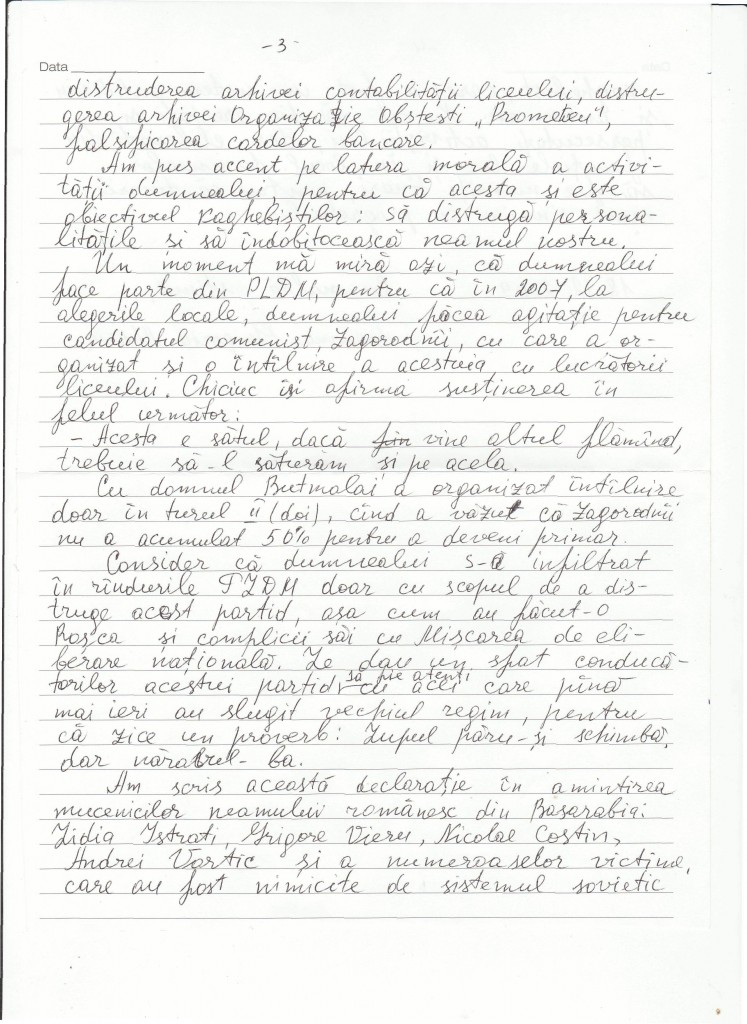 - 3 -
Data
distruderea arhivei contabilității liceului, distru-
gerea arhivei Organizației Obștești „Prometeu",
falsificarea cardelor bancare.
Am pus accent pe latura morală a activi-
tății dumnealui, pentru că acesta și este
obiectivul kaghebiștilor: să distrugă persona-
litățile și să îndobitocească neamul nostru.
Un moment mă miră azi, că dumnealui
face parte din PLDM, pentru că în 2007, la
alegerile locale, dumnealui făcea agitație pentru
candidatul comunist, Zagorodnîi, cu care a or-
ganizat și o întîlnire a acestuia cu lucrătorii
liceului. Chiciuc își afirma susținerea în
felul următor:
- Acesta e sătul, dacă vine altul flămînd,
trebuie să-l săturăm și pe acela.
Cu domnul Butmalai a organizat întîlnire
doar în turul II (doi), cînd a văzut că Zagorodnîi
nu a acumulat 50% pentru a deveni primar.
Consider că dumnealui s-a infiltrat
în rîndurile PLDM doar cu scopul de a dis-
truge acest partid, așa cum au făcut-o
Roșca și complicii săi cu Mișcarea de eli-
berare națională. Le dau un sfat conducă-
torilor acestui partid, să fie atenți cu acei care pînă
mai ieri au slugit vechiul regim, pentru
că zice un proverb: Lupul păru-și schimbă,
dar năravul - ba.
Am scris această declarație în amintirea
mucenicilor neamului românesc din Basarabia:
Lidia Istrati, Grigore Vieru, Nicolae Costin,
Andrei Vartic și a numeroaselor victime,
care au fost nimicite de sistemul sovietic